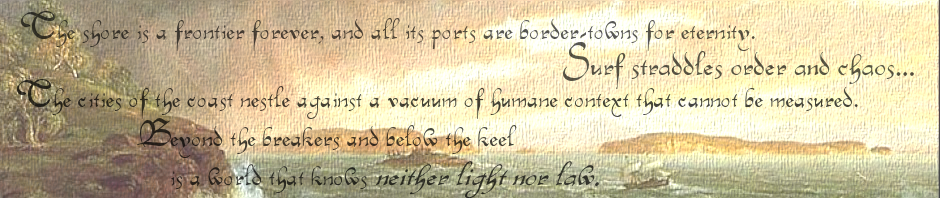 The shore is a frontier forever, and all its ports are border-towns for eternity.
Surf straddles order and chaos...
The cities of the coast nestle against a vacuum of humane context that cannot be measured.
Beyond the breakers and below the keel
is a world that knows neither light nor law.